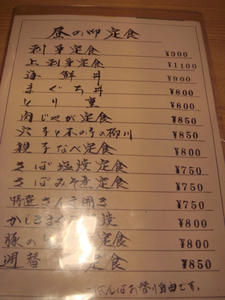 昼の御定食
刺身定食 ¥900
上刺身定食 ¥1100
海鮮丼 ¥900
まぐろ丼 ¥800
とり重 ¥800
肉じゃが定食 ¥850
穴子と木の子の柳川 ¥850
親子なべ定食 ¥800
さば塩焼定食 ¥750
さばみそ煮定食 ¥750
¥750
¥800
豚の 定食 ¥800
週替 定食 ¥850
ごはんはお替り自由です。